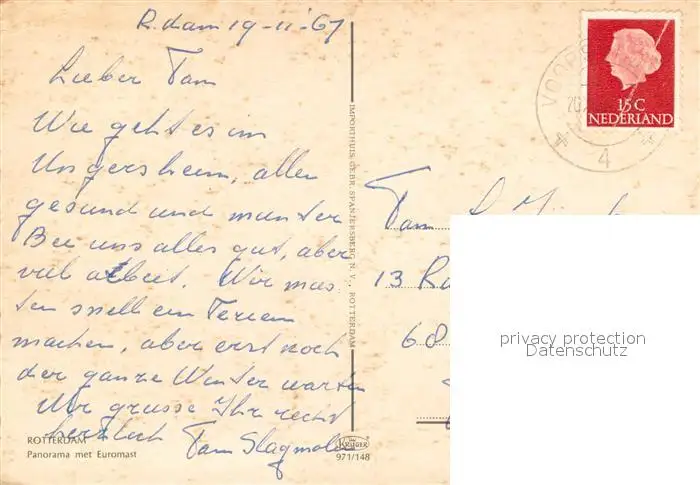 R.dam 19-11-67
Lieber Fam
Wie geht es im
Ungersheim, allen
gesund und munter
Bei uns alles gut, aber
viel arbeit. Wir müs
ten snell ein Ferien
machen, aber erst noch
der ganze Winter warten
Wir grusse Ihr recht
herzlich Fam Slagmolen
ROTTERDAM
Panorama met Euromast
IMPORTHUIS GEBR. SPANJERSBERG N.V., ROTTERDAM
KRÜGER
971/148
VOORS
20
4
15 C
NEDERLAND
Fam
13 Ra
68
privacy protection
Datenschutz